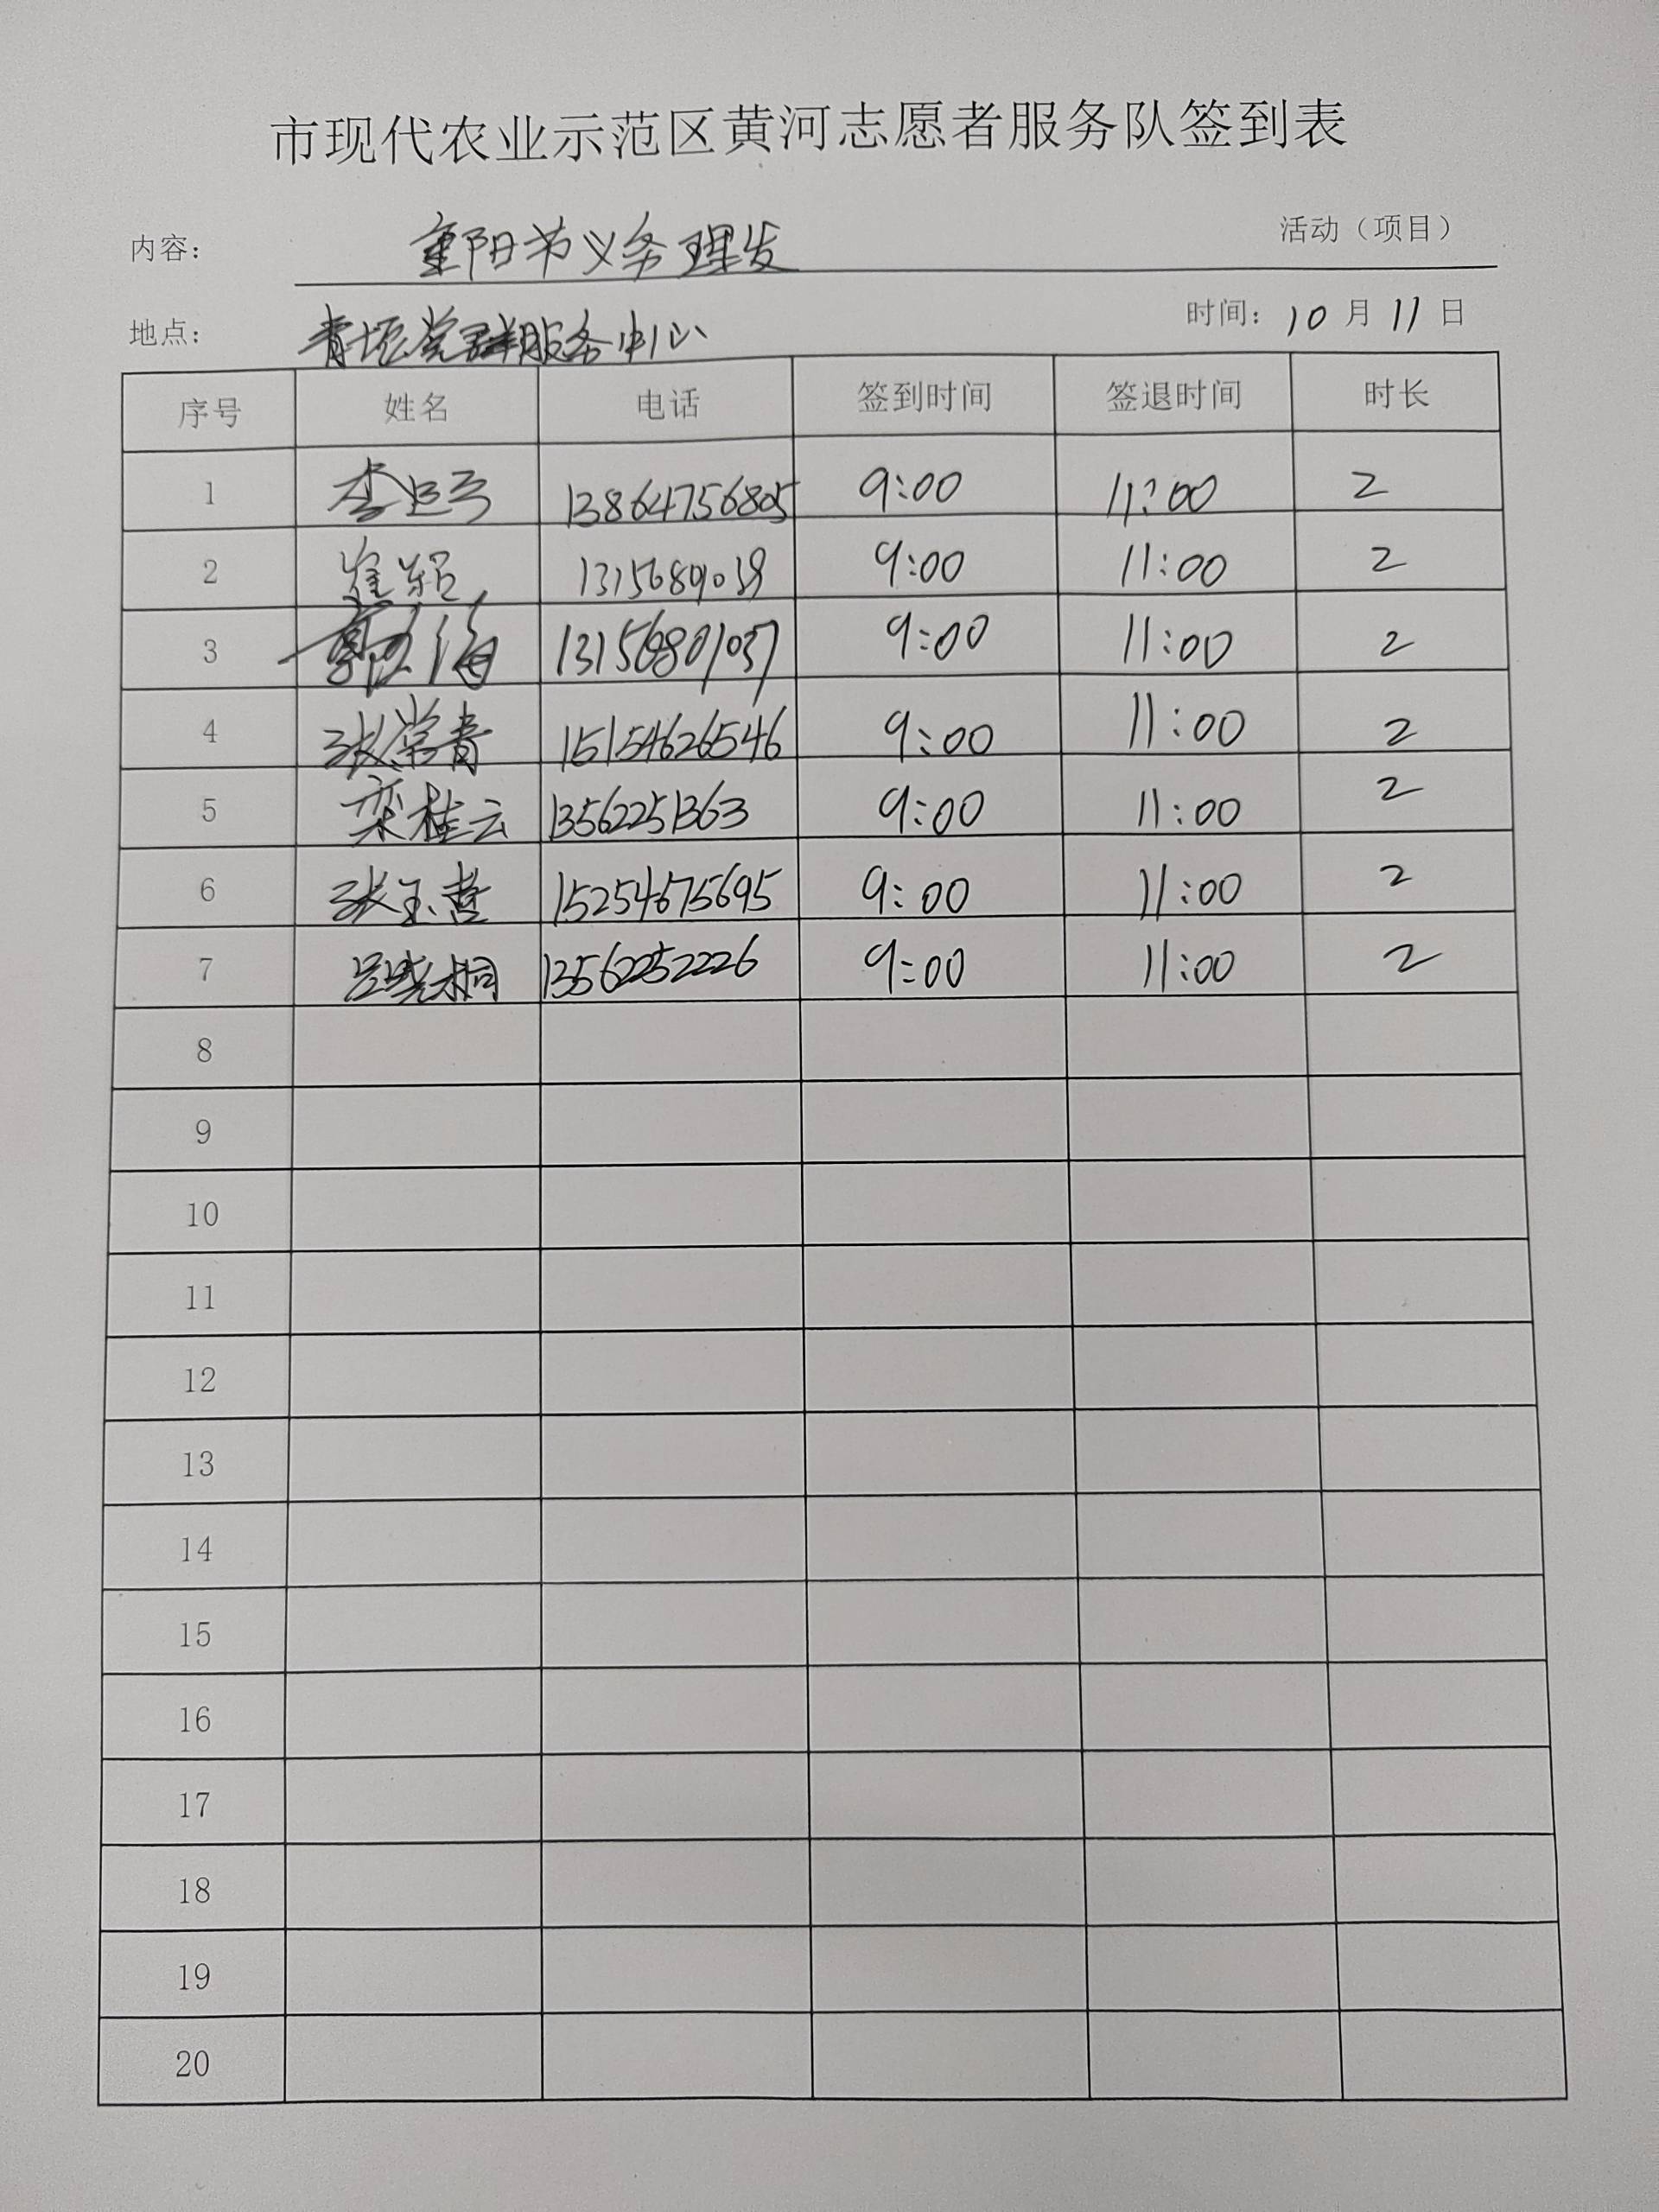 市现代农业示范区黄河志愿者服务队签到表
内容： 重阳节义务理发 活动（项目）
地点： 青垦党群服务中心 时间：10月11日
序号 姓名 电话 签到时间 签退时间 时长
1 李 13864756805 9:00 11:00 2
2 崔颖 9:00 11:00 2
3 郭 海 13156801037 9:00 11:00 2
4 张常青 15154626546 9:00 11:00 2
5 栾桂云 13562251363 9:00 11:00 2
6 张玉哲 15254675695 9:00 11:00 2
7 吕晓桐 13562252226 9:00 11:00 2
8
9
10
11
12
13
14
15
16
17
18
19
20